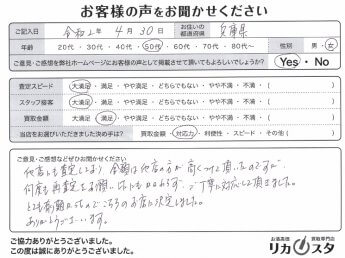 お客様の声をお聞かせください
ご記入日 令和2年 4月 30日 お住いの都道府県 兵庫県
年齢 20代・30代・40代・50代・60代・70代・80代~ 性別 男・女
ご意見・ご感想を弊社ホームページにお客様の声として掲載させて頂いてもよろしいでしょうか? Yes・No
査定スピード 大満足・満足・やや満足・どちらでもない・やや不満・不満・( )
スタッフ接客 大満足・満足・やや満足・どちらでもない・やや不満・不満・( )
買取金額 大満足・満足・やや満足・どちらでもない・やや不満・不満・( )
当店をお選びいただきました決め手は? 買取金額・対応力・利便性・スピード・その他( )
ご意見・ご感想などぜひお聞かせください
他店も査定しており 金額は他店の方が高くつけて頂いたのですが
何度も再査定をお願いしたにもかかわらず、ご丁寧に対応して頂きました。
とても好感がもてたのでこちらのお店に決定しました。
ありがとうございます。
ご協力ありがとうございました。
この度は誠にありがとうございました。
お酒高価買取専門店
リカスタ